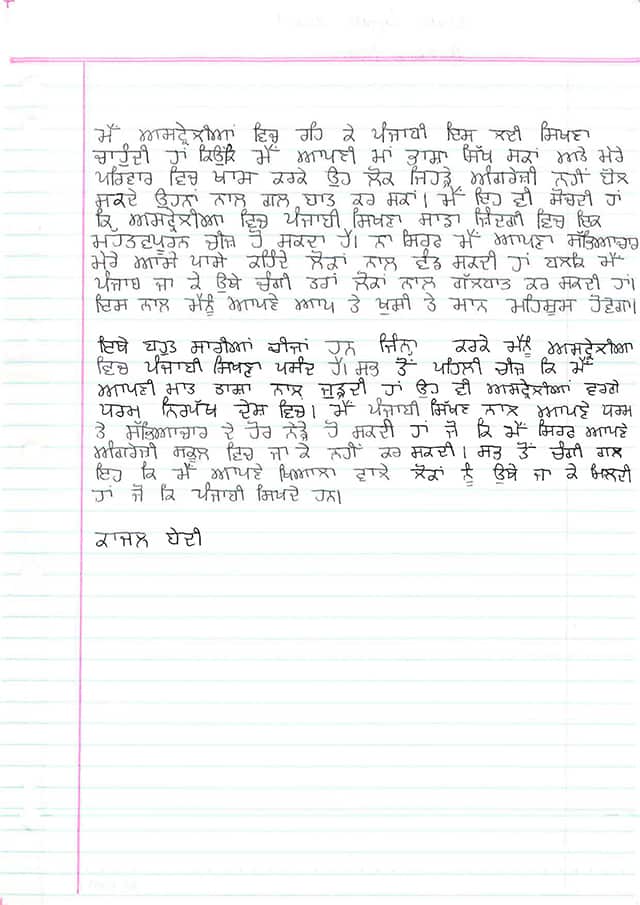 ਮੈਂ ਅਸਟ੍ਰੇਲੀਆਂ ਵਿਚ ਰਹਿ ਕੇ ਪੰਜਾਬੀ ਇਸ ਲਈ ਸਿਖਣਾ
ਚਾਹੁੰਦੀ ਹਾਂ ਕਿਉਂਕਿ ਮੈਂ ਆਪਣੀ ਮਾਂ ਭਾਸ਼ਾ ਸਿੱਖ ਸਕਾਂ ਅਤੇ ਮੇਰੇ
ਪਰਿਵਾਰ ਵਿਚ ਖਾਸ ਕਰਕੇ ਉਹ ਲੋਕ ਜਿਹੜੇ ਅੰਗਰੇਜ਼ੀ ਨਹੀਂ ਬੋਲ
ਸਕਦੇ ਉਹਨਾਂ ਨਾਲ ਗਲ ਬਾਤ ਕਰ ਸਕਾਂ। ਮੈਂ ਇਹ ਵੀ ਸੋਚਦੀ ਹਾਂ
ਕਿ ਅਸਟ੍ਰੇਲੀਆ ਵਿਚ ਪੰਜਾਬੀ ਸਿਖਣਾ ਸਾਡਾ ਜ਼ਿੰਦਗੀ ਵਿਚ ਇਕ
ਮਹਤਵਪੂਰਨ ਚੀਜ਼ ਹੋ ਸਕਦਾ ਹੈ। ਨਾ ਸਿਰਫ ਮੈਂ ਆਪਣਾ ਸੱਭਿਆਚਾਰ
ਮੇਰੇ ਆਸੇ ਪਾਸੇ ਰਹਿੰਦੇ ਲੋਕਾਂ ਨਾਲ ਵੰਡ ਸਕਦੀ ਹਾਂ ਬਲਕਿ ਮੈਂ
ਪੰਜਾਬ ਜਾ ਕੇ ਉਥੇ ਚੰਗੀ ਤਰਾਂ ਲੋਕਾਂ ਨਾਲ ਗੱਲਬਾਤ ਕਰ ਸਕਦੀ ਹਾਂ।
ਇਸ ਨਾਲ ਮੈਨੂੰ ਆਪਣੇ ਆਪ ਤੇ ਖੁਸ਼ੀ ਤੇ ਮਾਨ ਮਹਿਸੂਸ ਹੋਵੇਗਾ।
ਇਥੇ ਬਹੁਤ ਸਾਰੀਆਂ ਚੀਜ਼ਾਂ ਹਨ ਜਿੰਨਾ ਕਰਕੇ ਮੈਨੂੰ ਅਸਟ੍ਰੇਲੀਆ
ਵਿਚ ਪੰਜਾਬੀ ਸਿਖਣਾ ਪਸੰਦ ਹੈ। ਸਭ ਤੋਂ ਪਹਿਲੀ ਚੀਜ਼ ਕਿ ਮੈਂ
ਆਪਣੀ ਮਾਤ ਭਾਸ਼ਾ ਨਾਲ ਜੁੜਦੀ ਹਾਂ ਉਹ ਵੀ ਅਸਟ੍ਰੇਲੀਆਂ ਵਰਗੇ
ਧਰਮ ਨਿਰਪੱਖ ਦੇਸ਼ ਵਿਚ। ਮੈਂ ਪੰਜਾਬੀ ਸਿੱਖਣ ਨਾਲ ਆਪਣੇ ਧਰਮ
ਤੇ ਸੱਭਿਆਚਾਰ ਦੇ ਹੋਰ ਨੇੜੇ ਹੋ ਸਕਦੀ ਹਾਂ ਜੋ ਕਿ ਮੈਂ ਸਿਰਫ ਆਪਣੇ
ਅੰਗਰੇਜ਼ੀ ਸਕੂਲ ਵਿਚ ਜਾ ਕੇ ਨਹੀਂ ਕਰ ਸਕਦੀ। ਸਭ ਤੋਂ ਚੰਗੀ ਗਲ
ਇਹ ਕਿ ਮੈਂ ਆਪਣੇ ਖਿਆਲਾ ਵਾਲੇ ਲੋਕਾਂ ਨੂੰ ਉਥੇ ਜਾ ਕੇ ਮਿਲਦੀ
ਹਾਂ ਜੋ ਕਿ ਪੰਜਾਬੀ ਸਿਖਦੇ ਹਨ।
ਕਾਜਲ ਬੇਦੀ